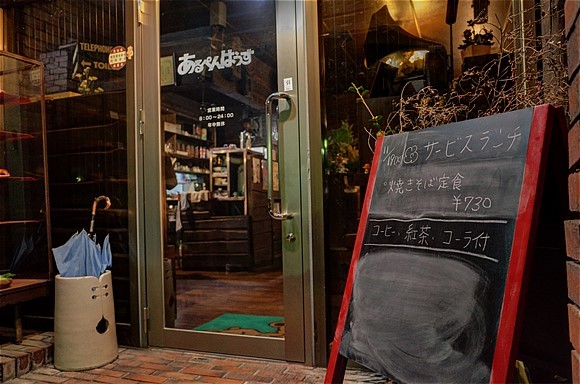 TELEPHONE
あるぺんはうす
営業時間
8:00〜24:00
年中無休
サービスランチ
焼きそば定食
¥730
コーヒー、紅茶、コーラ付